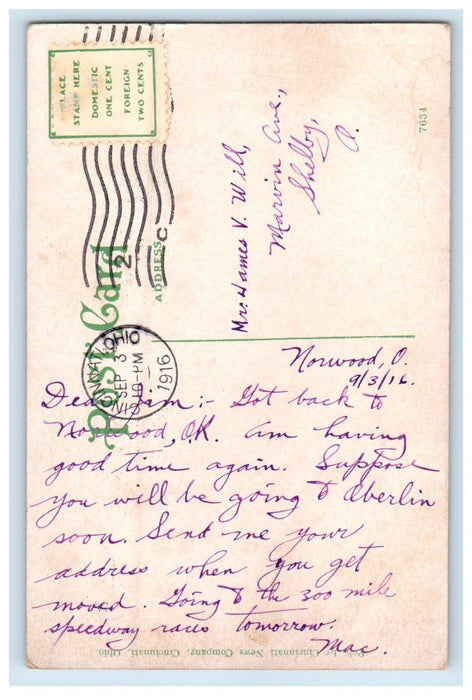 PLACE
STAMP HERE
DOMESTIC
ONE CENT
FOREIGN
TWO CENTS
Post Card
ADDRESS
7634
2
C
CINCINNATI, OHIO
SEP 3
10-PM
1916
Mr. James V. Will,
Marvin Ave.,
Shelby,
O.
Norwood, O.
9/3/16.
Dear Jim:- Got back to
Norwood, O.K. Am having
good time again. Suppose
you will be going to Oberlin
soon. Send me your
address when you get
moved. Going to the 300 mile
speedway races tomorrow.
Mac.
Pub. by Cincinnati News Company, Cincinnati, Ohio.